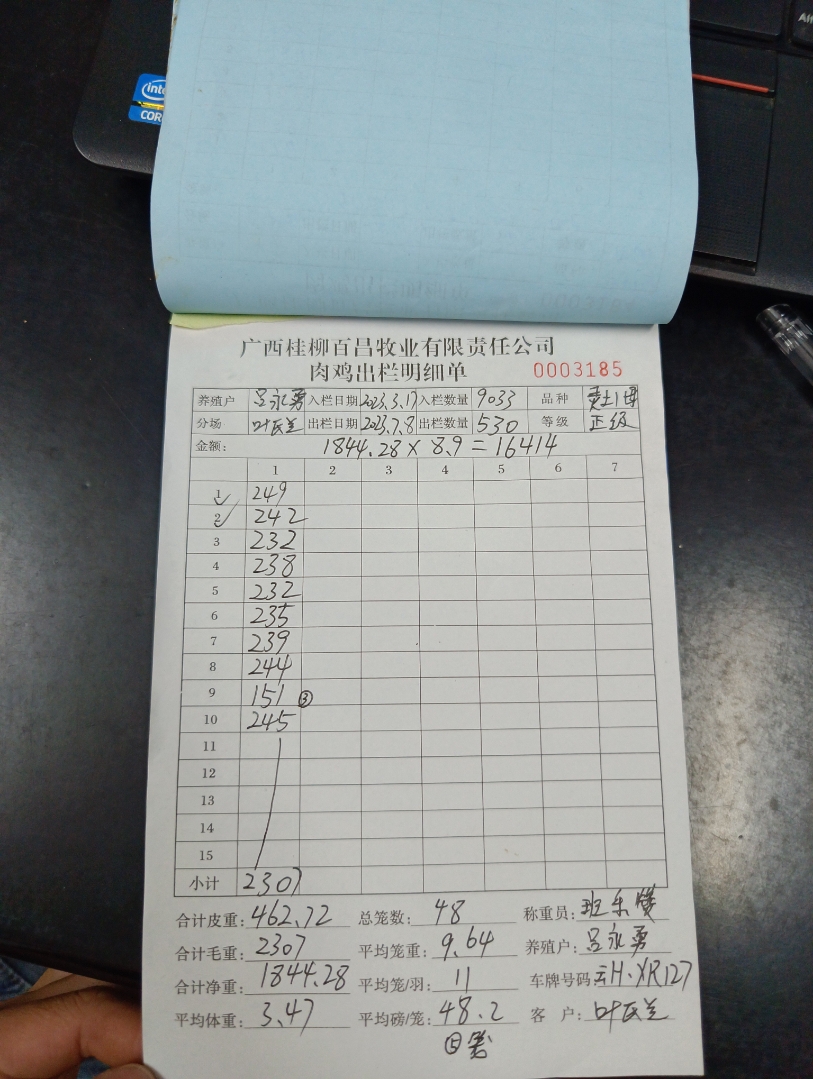 intel
CORE
广西桂柳百昌牧业有限责任公司
肉鸡出栏明细单 0003185
养殖户 吕永勇 入栏日期 2023.3.17 入栏数量 9033 品种
分场 叶民兰 出栏日期 2023.7.8 出栏数量 530 等级 正级
金额: 1844.28 × 8.9 = 16414
1 2 3 4 5 6 7
1 249
2 242
3 232
4 238
5 232
6 235
7 239
8 244
9 151 ③
10 245
11
12
13
14
15
小计 2307
合计皮重: 462.72 总笼数: 48 称重员: 班乐
合计毛重: 2307 平均笼重: 9.64 养殖户: 吕永勇
合计净重: 1844.28 平均笼/羽: 11 车牌号码: 云H·XR127
平均体重: 3.47 平均磅/笼: 48.2 客户: 叶民兰